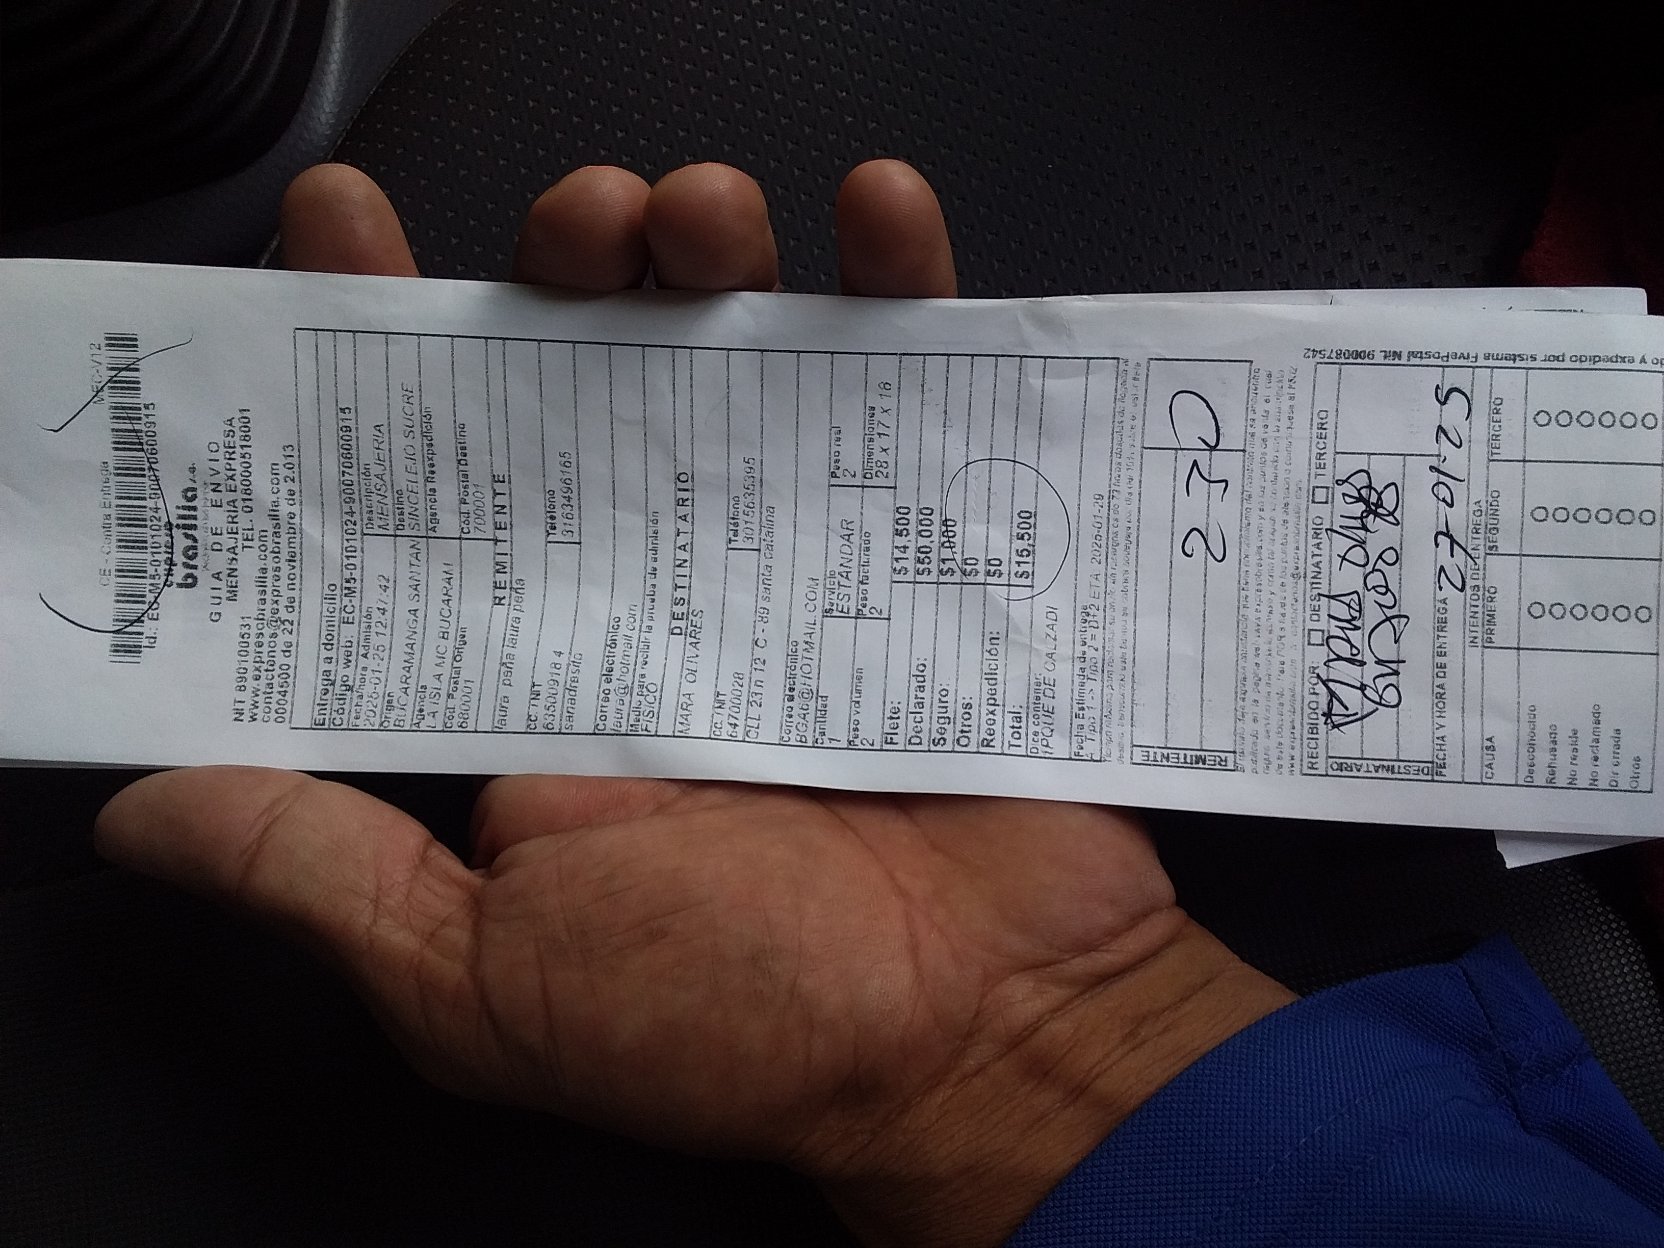 CE - Contra Entrega
MEC-V12
Id.: EC-M5-0101024-9007060915
expreso
brasilia s.a.
GUIA DE ENVIO
MENSAJERIA EXPRESA
NIT 890100531 TEL. 018000518001
www.expresobrasilia.com
contactenos@expresobrasilia.com
0004500 de 22 de noviembre de 2.013
Entrega a domicilio
Código web: EC-M5-0101024-9007060915
Fecha/hora Admisión
Descripción
2025-01-25 12:47:42
MENSAJERIA
Origen
Destino
BUCARAMANGA SANTAN
SINCELEJO SUCRE
Agencia
Agencia Reexpedición
LA ISLA MC BUCARAM
Cod. Postal Origen
Cod. Postal Destino
680001
700001
REMITENTE
laura peña laura peña
CC. / NIT
Teléfono
63500918 4
3163496165
sanadresito
Correo electrónico
laura@hotmail.com
Medio para recibir la prueba de admisión
FISICO
DESTINATARIO
MARA OLIVARES
CC. / NIT
Teléfono
64700028
3015635395
CLL 23 n 12 C - 89 santa catalina
Correo electrónico
BGA6@HOTMAIL.COM
Cantidad
Servicio
Peso real
1
ESTÁNDAR
2
Peso volumen
Peso facturado
Dimensiones
2
2
28 X 17 X 18
Flete: $14,500
Declarado: $50,000
Seguro: $1,000
Otros: $0
Reexpedición: $0
Total: $15,500
Dice contener:
1PQUE DE CALZADI
Fecha Estimada de entrega
REMITENTE
23D
RECIBIDO POR: DESTINATARIO TERCERO
DESTINATARIO
FECHA Y HORA DE ENTREGA 27-01-25
INTENTOS DE ENTREGA
CAUSA PRIMERO SEGUNDO TERCERO
Desconocido
Rehusado
No reside
No reclamado
Dir errada
Otros
do y expedido por sistema FivePostal Nit. 900087542